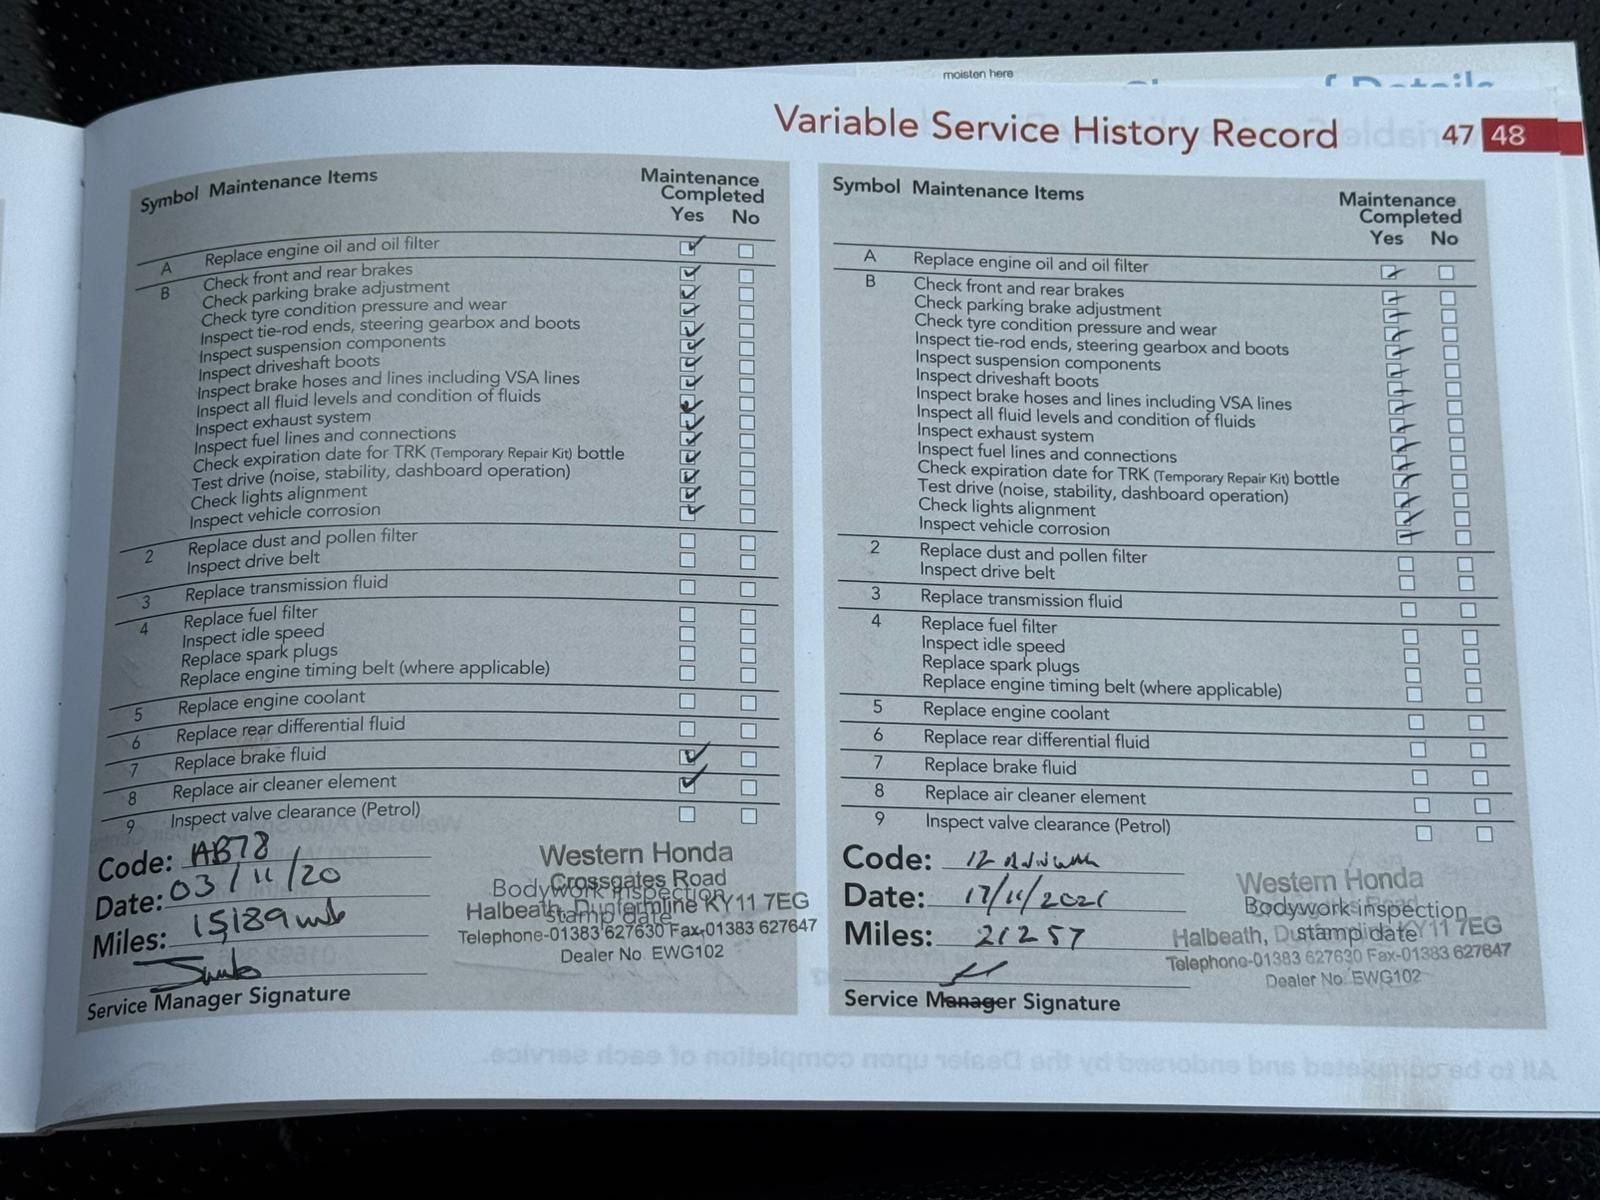 moisten here
Variable Service History Record 47 48
Symbol Maintenance Items Maintenance Completed
Yes No
A Replace engine oil and oil filter
B Check front and rear brakes
Check parking brake adjustment
Check tyre condition pressure and wear
Inspect tie-rod ends, steering gearbox and boots
Inspect suspension components
Inspect driveshaft boots
Inspect brake hoses and lines including VSA lines
Inspect all fluid levels and condition of fluids
Inspect exhaust system
Inspect fuel lines and connections
Check expiration date for TRK (Temporary Repair Kit) bottle
Test drive (noise, stability, dashboard operation)
Check lights alignment
Inspect vehicle corrosion
2 Replace dust and pollen filter
Inspect drive belt
3 Replace transmission fluid
4 Replace fuel filter
Inspect idle speed
Replace spark plugs
Replace engine timing belt (where applicable)
5 Replace engine coolant
6 Replace rear differential fluid
7 Replace brake fluid
8 Replace air cleaner element
9 Inspect valve clearance (Petrol)
Code: AB78
Date: 03/11/20
Miles: 15189
Service Manager Signature
Western Honda
Crossgates Road
Bodywork inspection
Halbeath, Dunfermline KY11 7EG
stamp date
Telephone-01383 627630 Fax-01383 627647
Dealer No. EWG102
Symbol Maintenance Items Maintenance Completed
Yes No
A Replace engine oil and oil filter
B Check front and rear brakes
Check parking brake adjustment
Check tyre condition pressure and wear
Inspect tie-rod ends, steering gearbox and boots
Inspect suspension components
Inspect driveshaft boots
Inspect brake hoses and lines including VSA lines
Inspect all fluid levels and condition of fluids
Inspect exhaust system
Inspect fuel lines and connections
Check expiration date for TRK (Temporary Repair Kit) bottle
Test drive (noise, stability, dashboard operation)
Check lights alignment
Inspect vehicle corrosion
2 Replace dust and pollen filter
Inspect drive belt
3 Replace transmission fluid
4 Replace fuel filter
Inspect idle speed
Replace spark plugs
Replace engine timing belt (where applicable)
5 Replace engine coolant
6 Replace rear differential fluid
7 Replace brake fluid
8 Replace air cleaner element
9 Inspect valve clearance (Petrol)
Code: 12
Date: 17/11/2021
Miles: 21257
Service Manager Signature
Western Honda
Bodywork inspection
Halbeath, KY11 7EG
stamp date
Telephone-01383 627630 Fax-01383 627647
Dealer No. EWG102